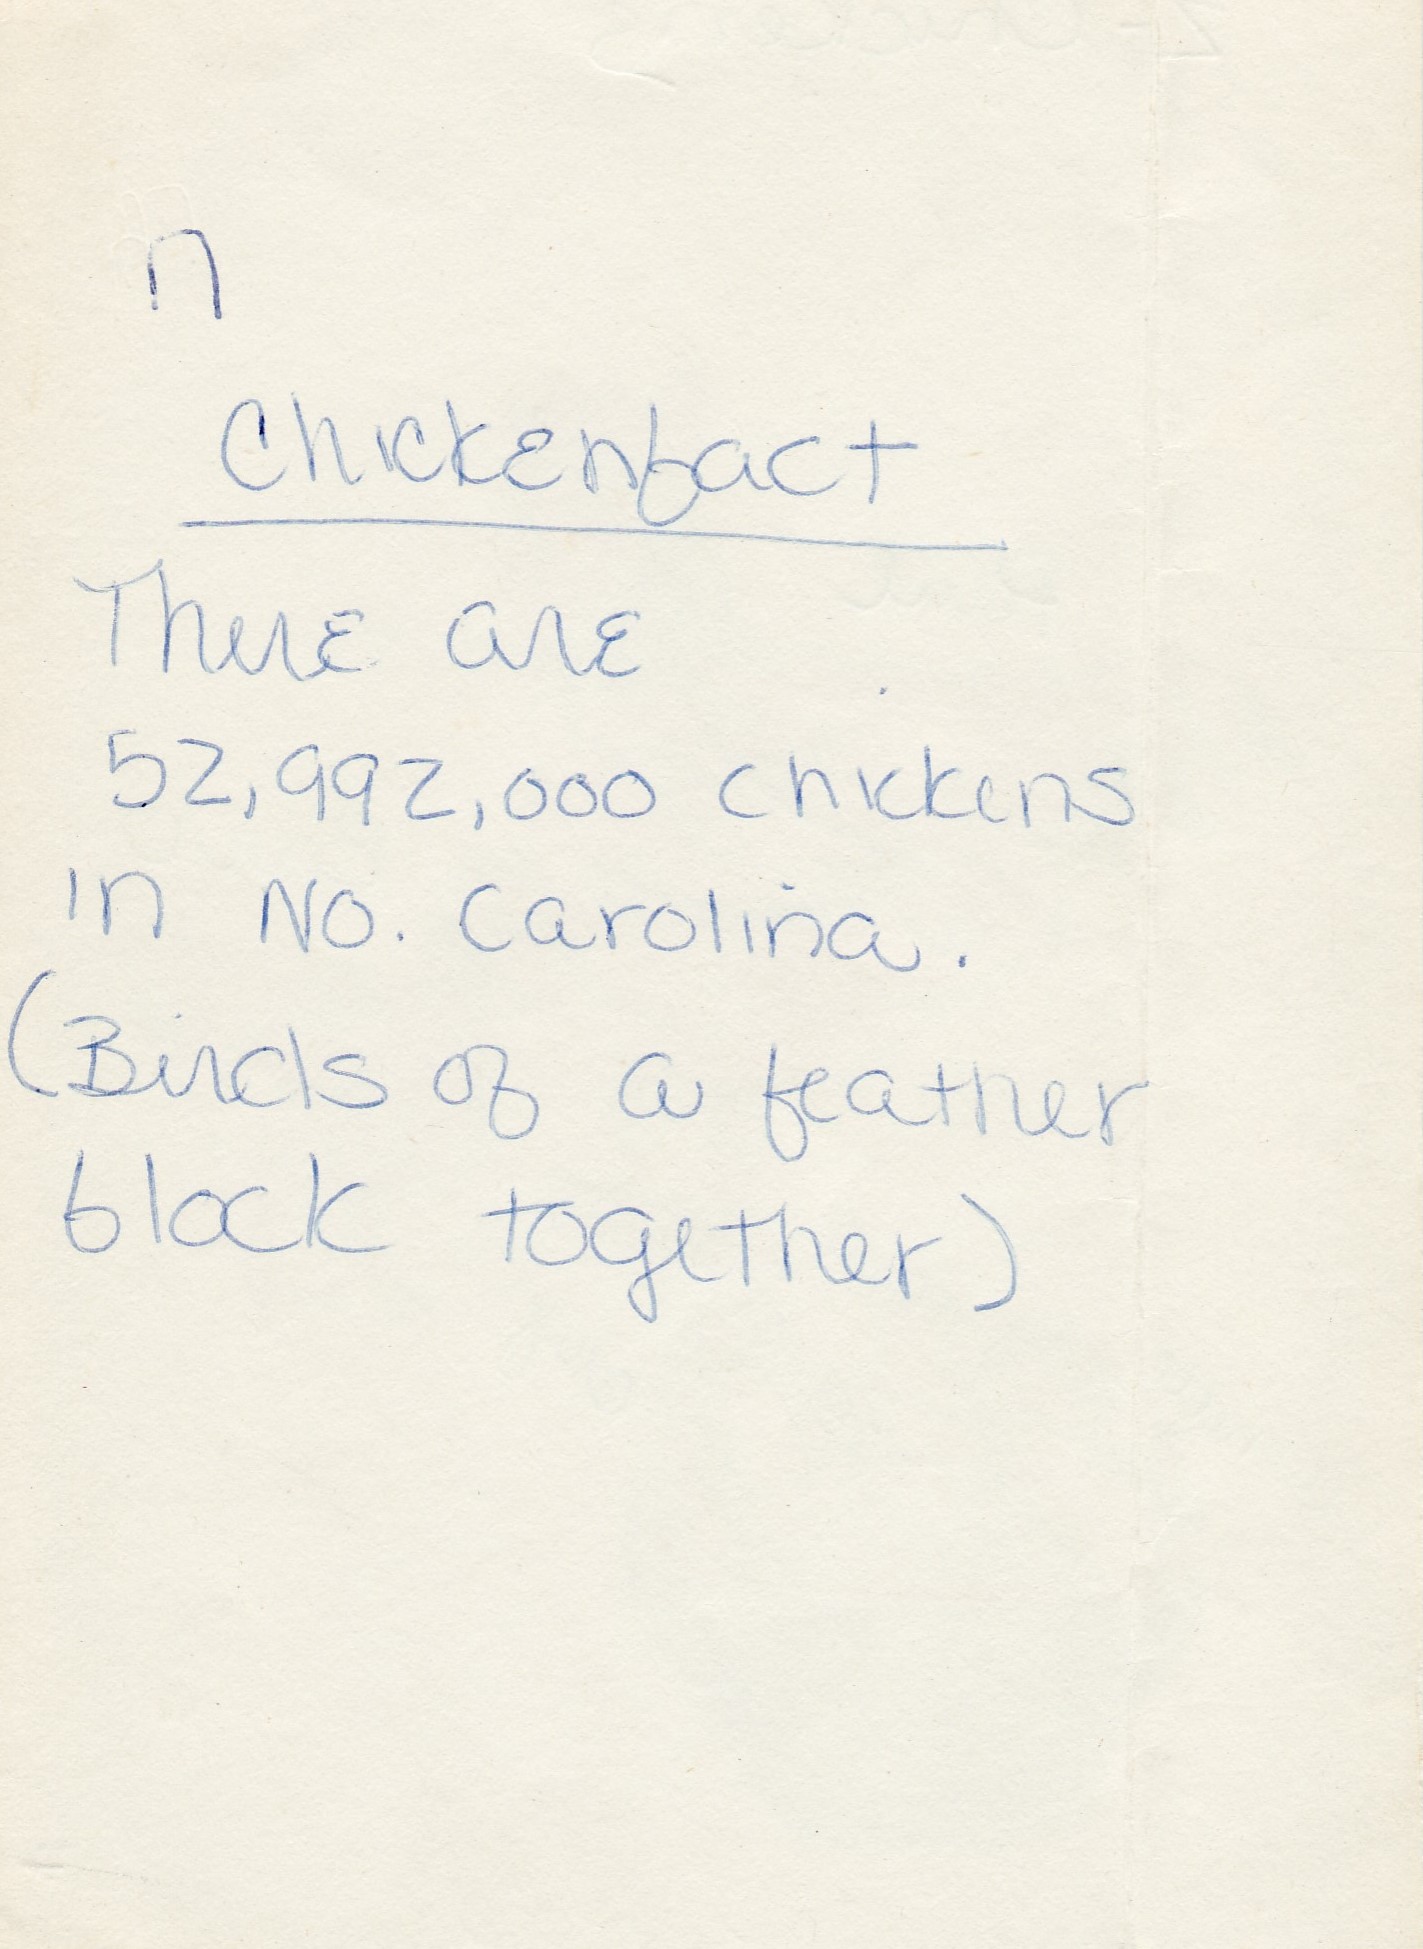 n
Chickenfact
There are
52,992,000 chickens
in No. Carolina.
(Birds of a feather
block together)